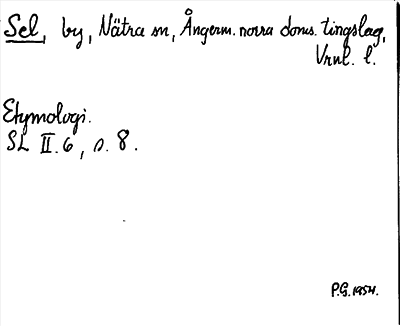 Sel, by, Nätra sn, Ångerm. norra doms. tingslag,
Vrnl. l.
Etymologi.
SL II.6, s. 8.
P.G. 1954.